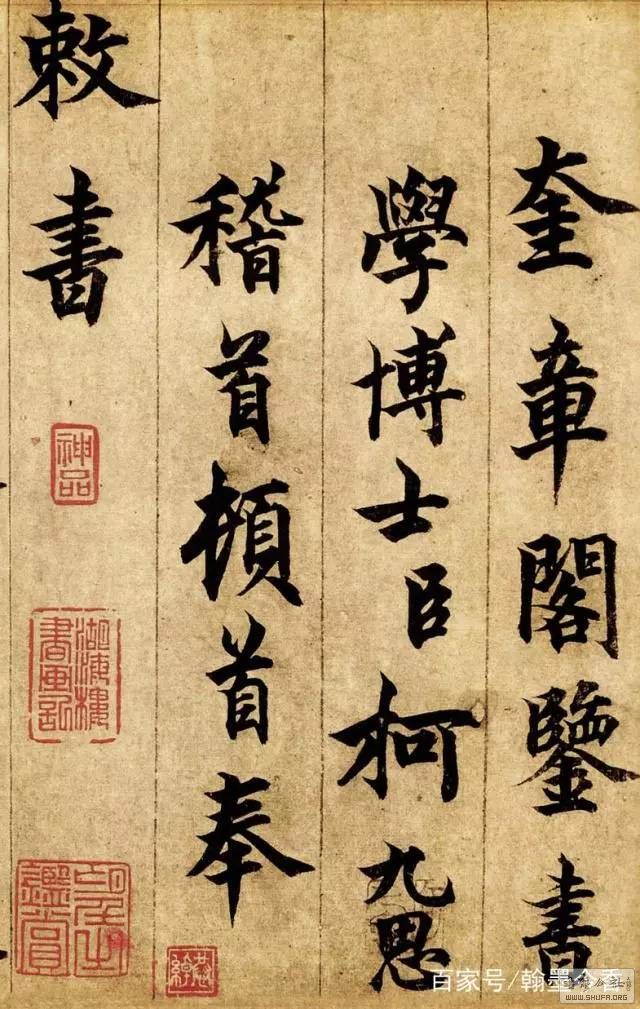 奎章閣鑒書
學博士臣柯九思
稽首頓首奉
敕書
神品
湖海樓書画記
百家号/翰墨今香
WWW.SHUFA.ORG